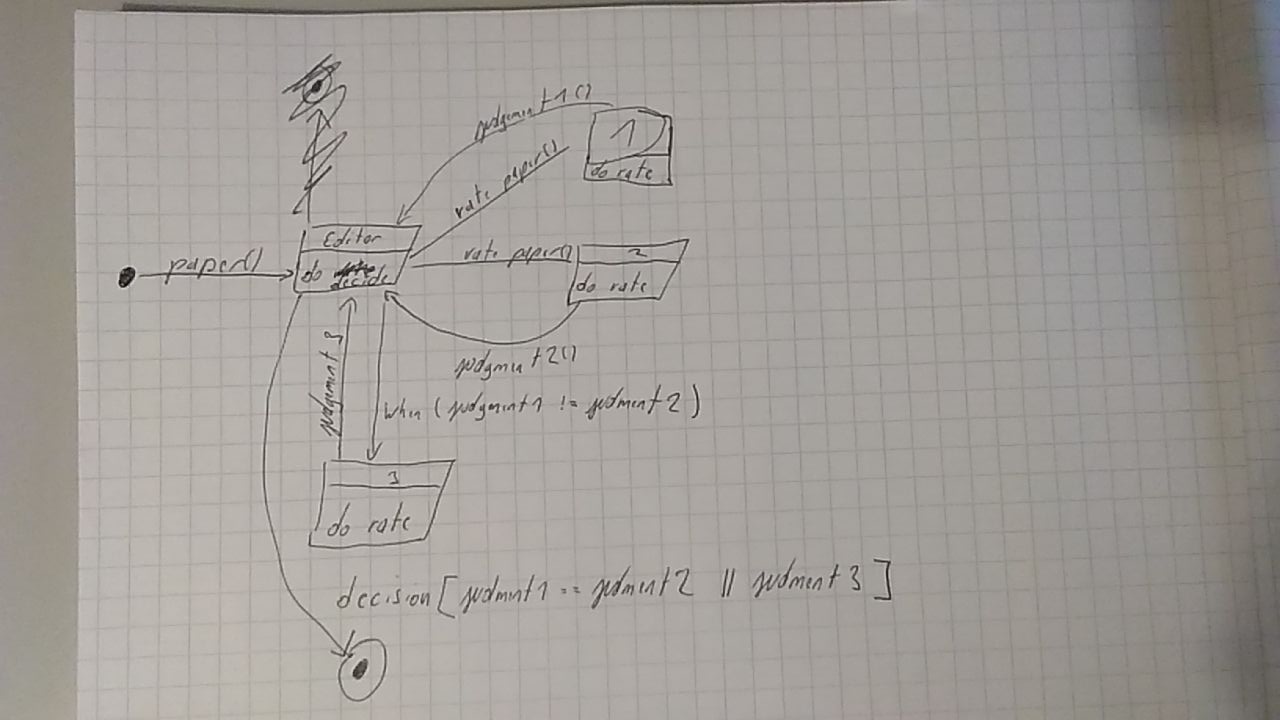 judgment1()
1
do rate
rate paper()
Editor
do decide
paper()
rate paper()
2
do rate
judgment2()
judgment 3
when (judgment1 != judment2)
3
do rate
decision[judment1 == judment2 || judment3]